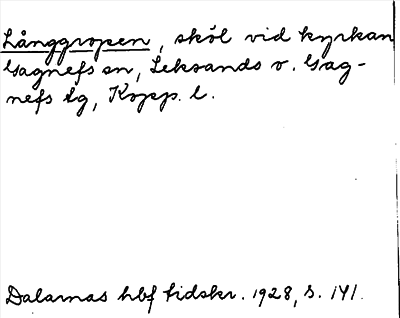 Långgropen, sköl vid kyrkan
Gagnefs sn, Leksands o. Gag-
nefs tg, Kopp. l.
Dalarnas hbf tidskr. 1928, s. 141.